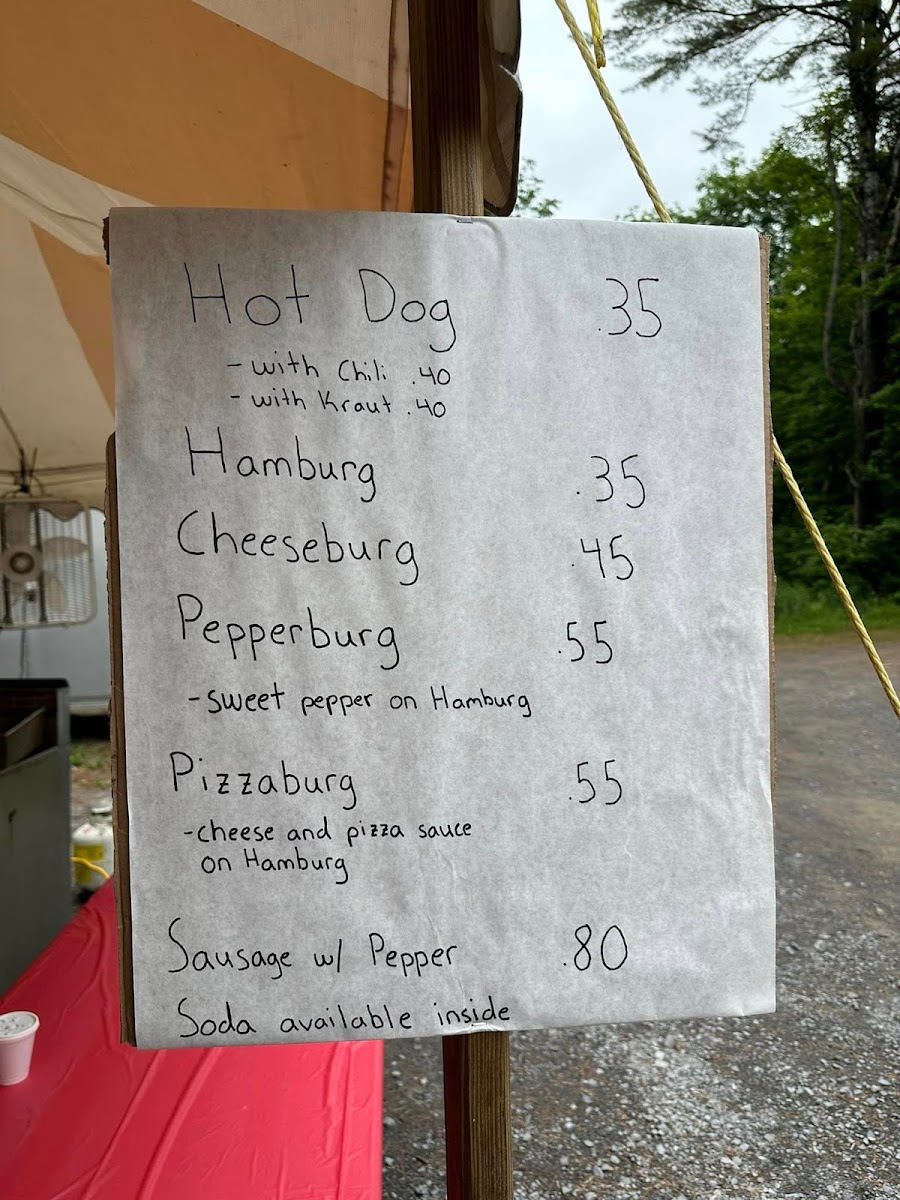 Hot Dog .35
- with Chili .40
- with Kraut .40
Hamburg .35
Cheeseburg .45
Pepperburg .55
- sweet pepper on Hamburg
Pizzaburg .55
- cheese and pizza sauce
on Hamburg
Sausage w/ Pepper .80
Soda available inside